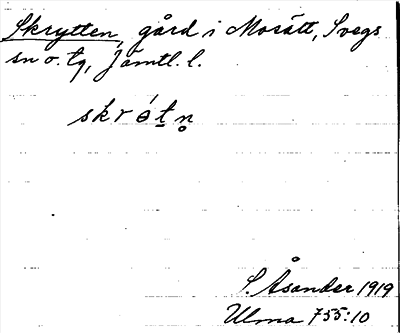 Skrytten, gård i Mosätt, Svegs
sn o. tg, Jämtl. l.
skrǿtn̥
S. Åsander 1919
Ulma 755:10